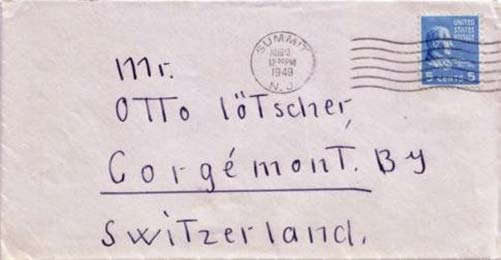 SUMMIT
AUG 3
12 PM
1949
N. J.
UNITED
STATES
POSTAGE
5 CENTS 5
Mr.
OTTO lötscher,
Corgémont. By
Switzerland.